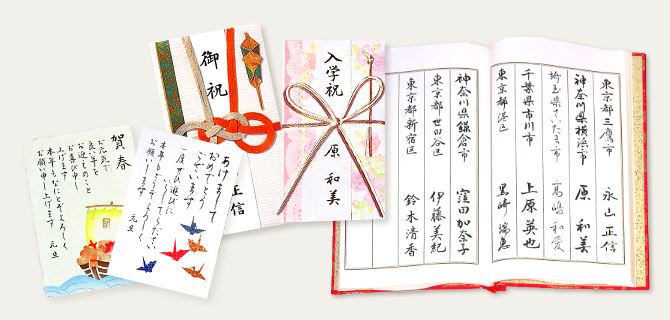 賀春
お元気で
良い年を
お迎えのことと
お喜び申し
上げます
本年もなにとぞよろしく
お願い申し上げます
元旦
あけまして
おめでとう
ございます
一度お遊びに
いらしてください
本年もどうぞよろしく
お願いします
元旦
御祝
正信
入学祝
原 和美
東京都三鷹市 永山正信
神奈川県横浜市 原 和美
埼玉県さいたま市 高嶋和愛
千葉県市川市 上原英也
東京都港区 黒崎瑞恵
神奈川県鎌倉市 窪田加奈子
東京都世田谷区 伊藤美紀
東京都新宿区 鈴木清香